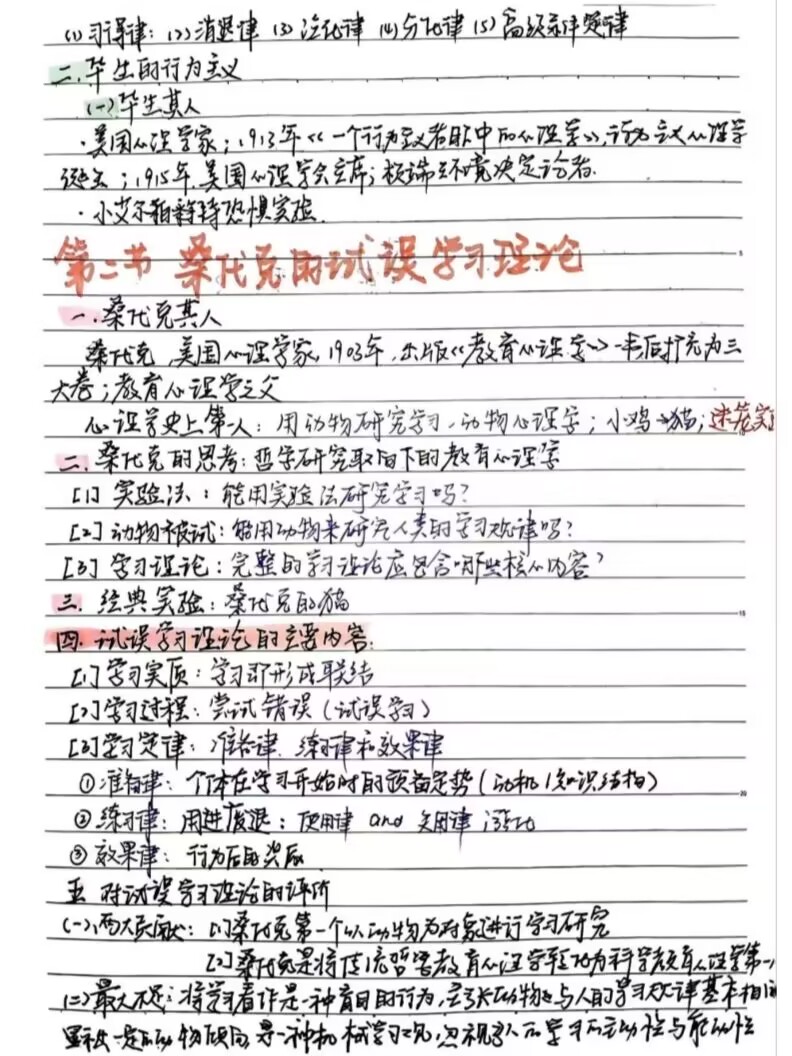 (1)习得律：(2)消退律 (3)泛化律 (4)分化律 (5)高级条件定律
二.华生的行为主义
(一)华生其人
·美国心理学家；1913年《一个行为主义者眼中的心理学》，行为主义心理学
诞生；1915年美国心理学会主席；极端环境决定论者.
·小艾尔伯特恐惧实验.
第二节 桑代克的试误学习理论
一.桑代克其人
桑代克，美国心理学家，1903年，出版《教育心理学》一书后扩充为三
大卷；教育心理学之父
心理学史上第一人：用动物研究学习.动物心理学；小鸡→猫；迷笼实
二.桑代克的思考：哲学研究取向下的教育心理学
[1] 实验法：能用实验法研究学习吗？
[2] 动物被试：能用动物来研究人类的学习规律吗？
[3] 学习理论：完整的学习理论应包含哪些核心内容？
三.经典实验：桑代克的猫
四.试误学习理论的主要内容：
[1]学习实质：学习即形成联结
[2]学习过程：尝试错误(试误学习)
[3]学习定律：准备律.练习律和效果律
①准备律：个体在学习开始时的预备定势(动机/知识结构)
②练习律：用进废退：使用律 and 失用律
③效果律：行为后的奖
五 对试误学习理论的评价
(一)、两大贡献：[1]桑代克第一个以动物为对象进行学习研究
[2]桑代克是将传统哲学教育心理学转化为科学教育心理学第一
(二)最大不足：将学习看作是一种盲目的行为，动物与人的学习规律基本相同
一定的动物倾向，是一种机械学习观，忽视了人的学习的主动性与能动性